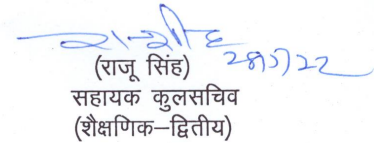 (राजू सिंह)
सहायक कुलसचिव
(शैक्षणिक–द्वितीय)